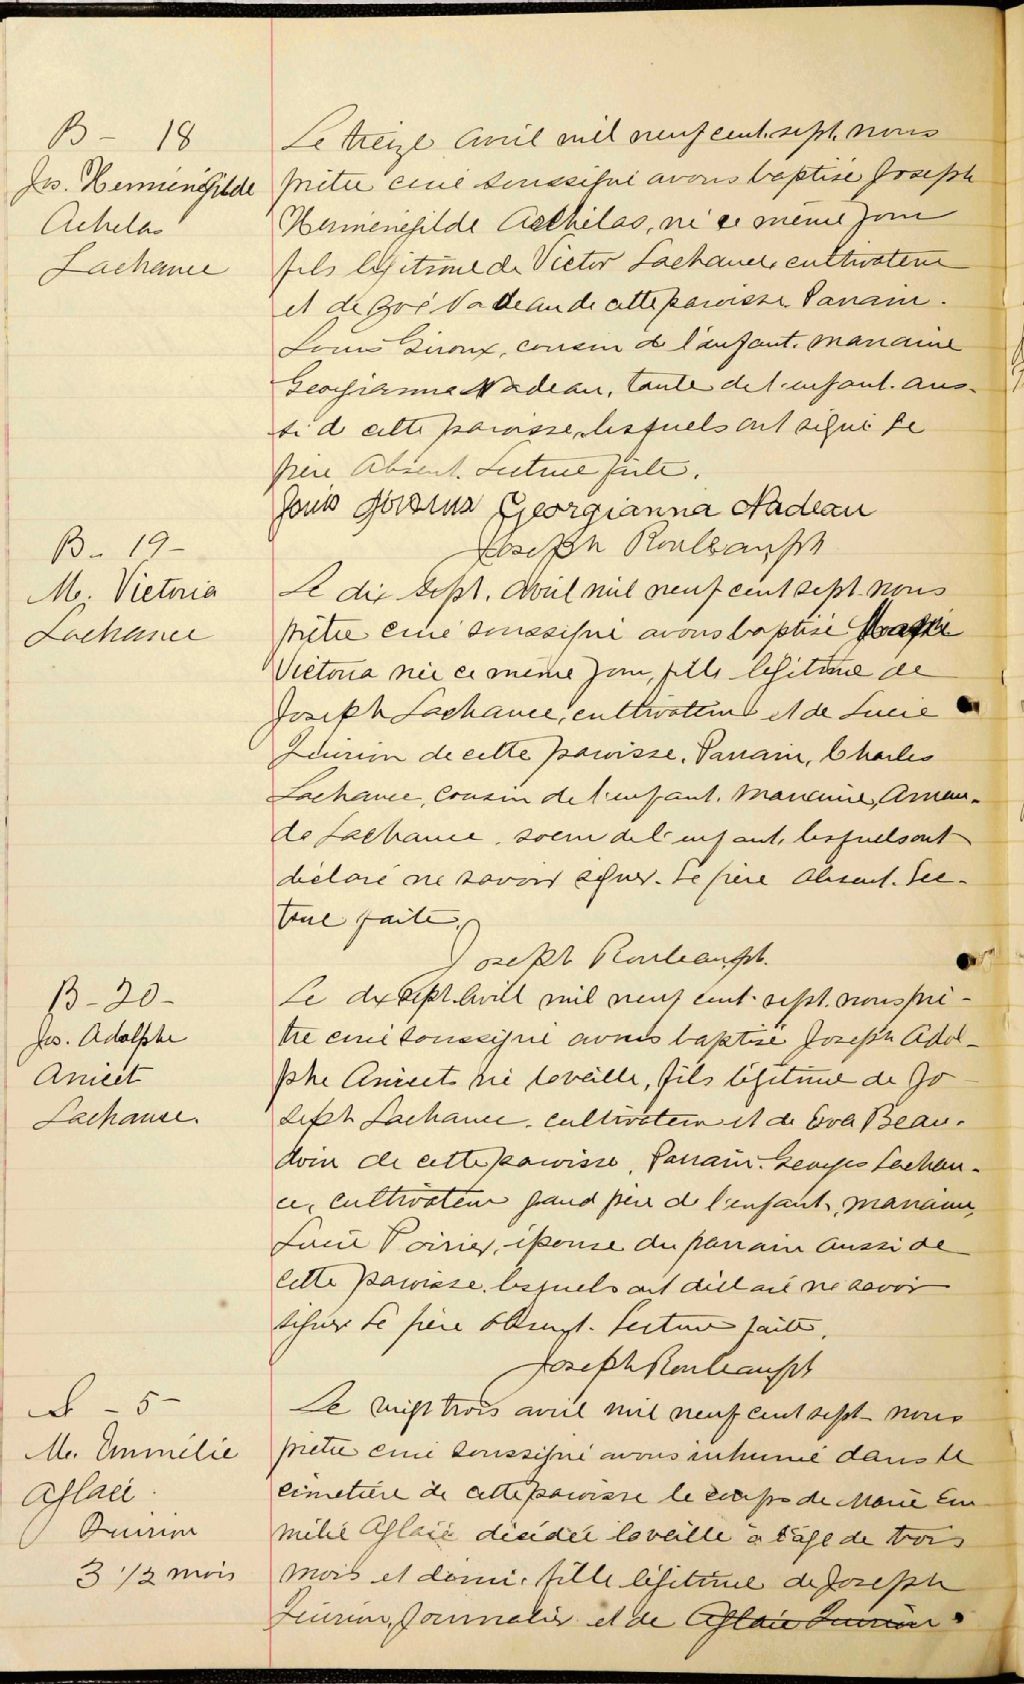 B - 18
Jos. Herménégilde
Achelas
Lachance
Le treize avril mil neuf cent sept nous
prêtre curé soussigné avons baptisé Joseph
Herménégilde Achélas, né ce même jour
fils légitime de Victor Lachance, cultivateur
et de Zoé Nadeau de cette paroisse Parrain.
Louis Giroux, cousin de l'enfant. marraine
Georgianna Nadeau, tante de l'enfant. aus-
si de cette paroisse, lesquels ont signé Le
père Absent. Lecture faite.
Louis Giroux Georgianna Nadeau
Joseph Rouleau, ptr
B - 19 -
M. Victoria
Lachance
Le dix sept. avril mil neuf cent sept nous
prêtre curé soussigné avons baptisé
Victoria née ce même jour, fille légitime de
Joseph Lachance, cultivateur et de Lucie
Quirion de cette paroisse. Parrain, Charles
Lachance, cousin de l'enfant. Marraine, Aman-
da Lachance, soeur de l'enfant, lesquels ont
déclaré ne savoir signer. Le père Absent. Lec-
ture faite.
Joseph Rouleau, ptr.
B - 20 -
Jos. Adolphe
Anicet
Lachance.
Le dix sept Avril mil neuf cent sept. nous prê-
tre curé soussigné avons baptisé Joseph Adol-
phe Anicet né la veille, fils légitime de Jo
seph Lachance, cultivateur et de Eva Beau-
doin de cette paroisse, Parrain. Georges Lachan-
ce, cultivateur grand père de l'enfant, marraine,
Lucie Poirier, épouse du parrain aussi de
cette paroisse, lesquels ont déclaré ne savoir
signer Le père Absent. Lecture faite.
Joseph Rouleau, ptr
S - 5 -
M. Emmélie
Aglaé
Quirion
3 1/2 mois
Le vingt trois avril mil neuf cent sept nous
prêtre curé soussigné avons inhumé dans le
cimetière de cette paroisse le corps de Marie Em
mélie Aglaé décédée la veille à l'âge de trois
mois et demi, fille légitime de Joseph
Quirion, Journalier et de Aglaé Quirion